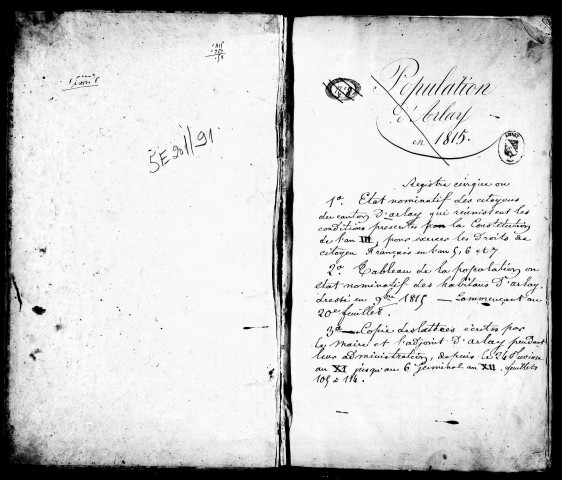 1815
5E201/91
Population
d'Arlay
en 1815.
Registre civique ou
1º. Etat nominatif des citoyens
du canton d'arlay qui réunissent les
conditions prescrites par la Constitution
de l'an III, pour exercer les Droits de
citoyen français en l'an 5, 6 et 7
2º. Tableau de la population, ou
etat nominatif des habitans d'arlay
dressé en 9bre 1815 — Commençant au
20e feuillet.
3e — Copie des lettres écrites par
le Maire et l'adjoint d'arlay pendant
leur administration, depuis le 24 Pluviose
an XI jusqu'au 6 Germinal an XII. feuillets
105 à 114.